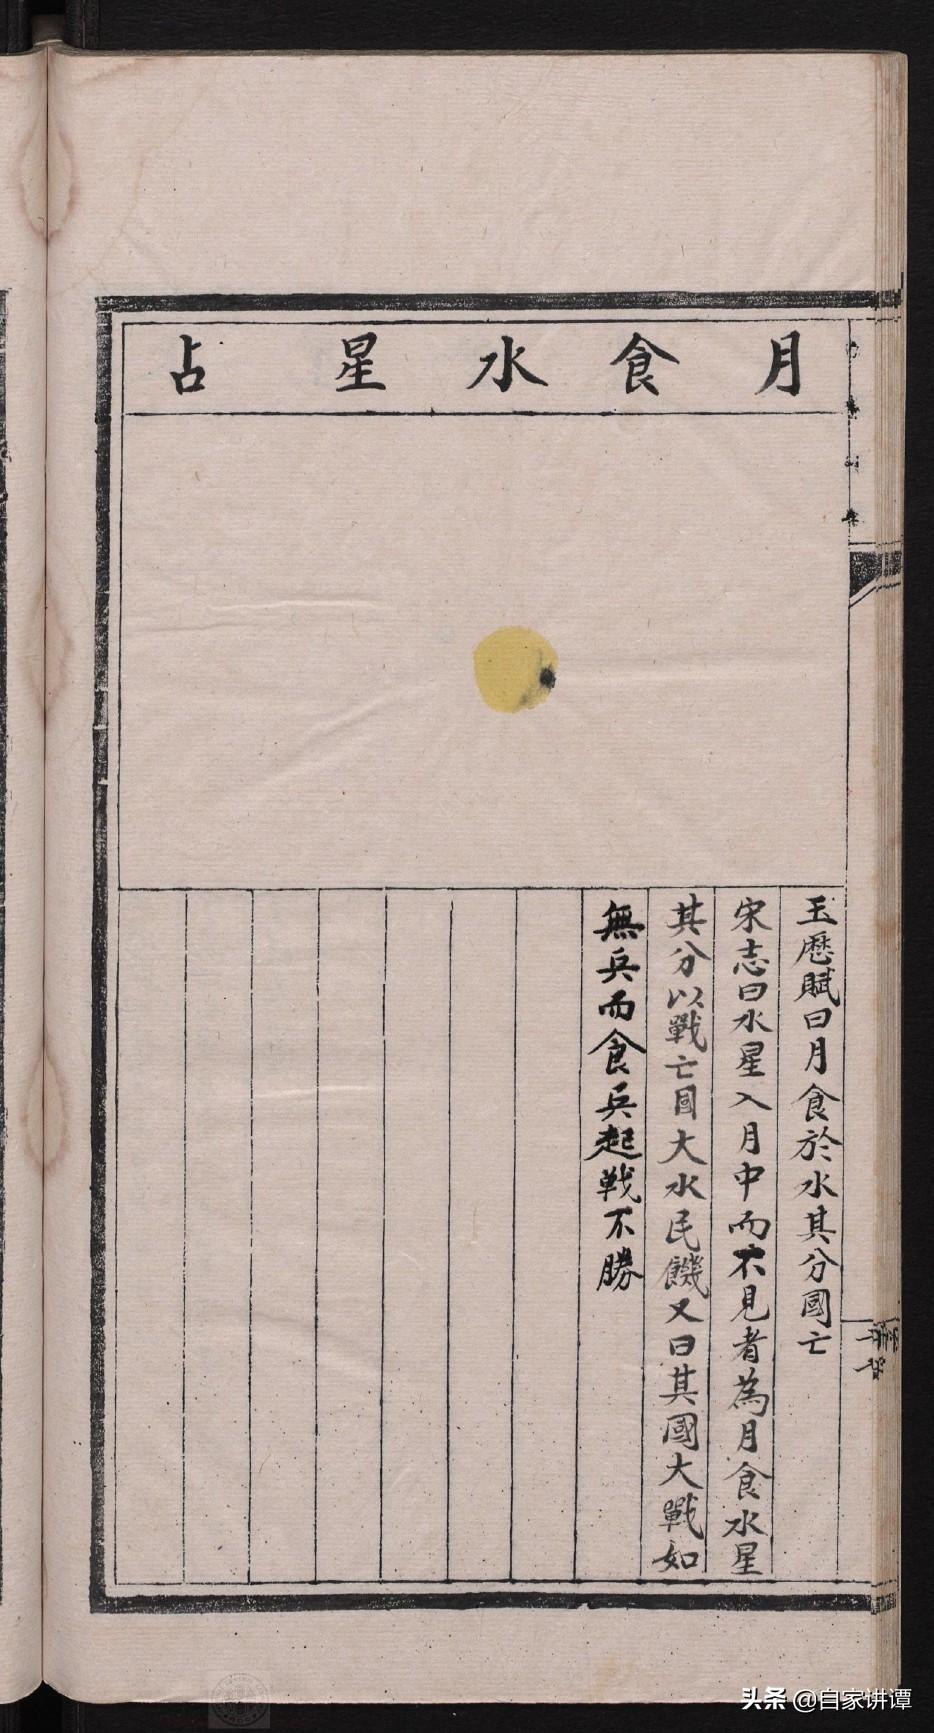 月食水星占
玉厯賦曰月食於水其分國亡
宋志曰水星入月中而不見者為月食水星
其分以戰亡國大水民饑又曰其國大戰如
無兵而食兵起戰不勝
头条 @自家讲谭